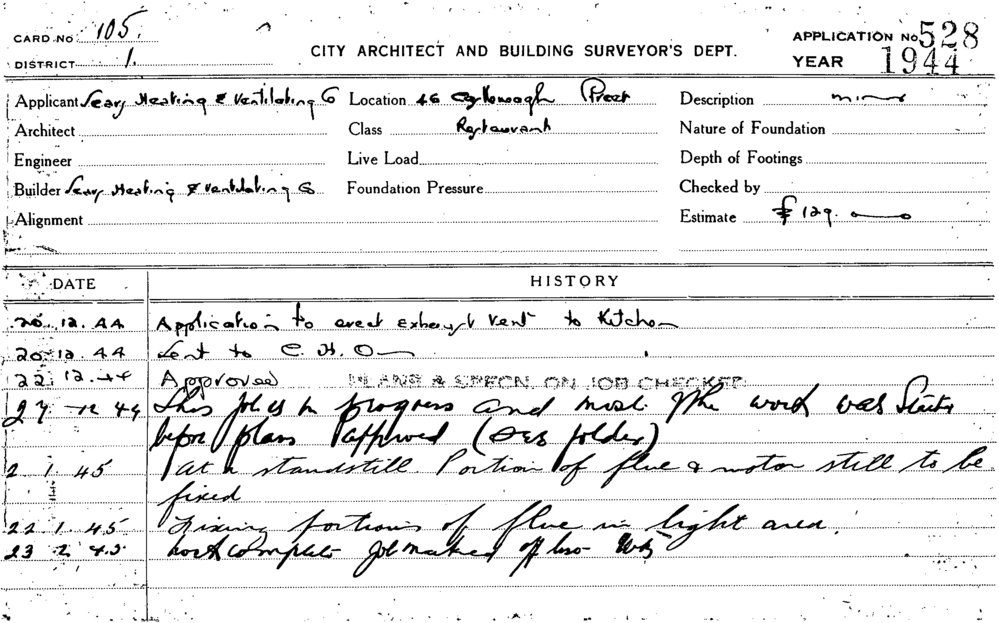 CARD No 105.
DISTRICT 1.
CITY ARCHITECT AND BUILDING SURVEYOR'S DEPT.
APPLICATION No 528
YEAR 1944
Applicant Seary Heating & Ventilating Co Location 46 Street Description minor
Architect Class Restaurant Nature of Foundation
Engineer Live Load Depth of Footings
Builder Seary Heating & Ventilating Co Foundation Pressure Checked by
Alignment Estimate £129.
DATE HISTORY
20.12.44 Application to erect exhaust vent to Kitchen
20.12.44 Sent to C.H.O
22.12.44 Approved PLANS & SPECN. ON JOB CHECKED
27 12 44 This job is in progress and most of the work was
before plans approved (See folder)
2 1 45 at a standstill Portion of flue & motor still to be
fixed
22.1.45 Fixing portions of flue in light area.
23 2 45 work complete Job marked off